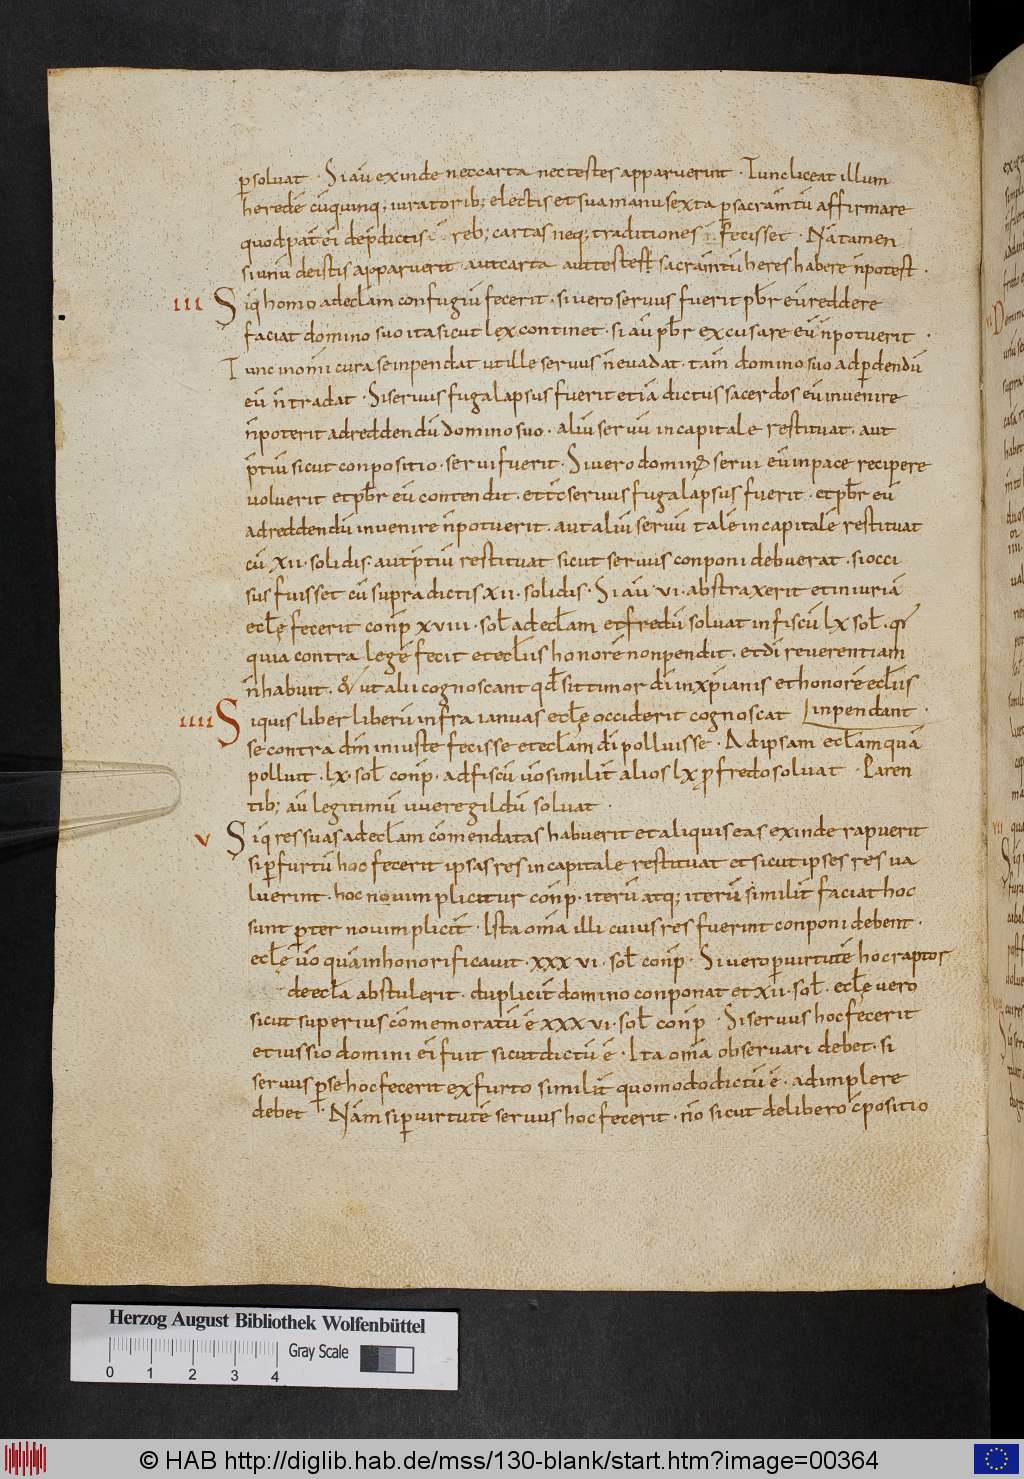 p̱soluat · Siaū exinde neccarta nectestes apparuerint · Tuncliceat illum
heredē cū quinq; iuratorib; electis et sua manu sexta p̱sacram̄tū affirmare
quod pat̄ ei dep̄dictis reb; cartas neq; traditiones n̄ fecisset · Nātamen
si unū deistis apparuerit autcarta auttestest sacram̄tū heres habere n̄potest ·
III Siq̄ homo adecl̄am confugiū fecerit · si uero seruus fuerit pb̄r eū reddere
faciat domino suo ita sicut lex continet · si aū pb̄r excusare eū n̄potuerit ·
Tunc inom̄i cura se inpendat ut ille seruus n̄euadat · tam̄ domino suo adp̱dendū
eū n̄tradat · Si seruus fuga lapsus fuerit etiā dictus sacerdos eū inuenire
n̄poterit adreddendū domino suo · aliū seruū incapitale restituat · aut
p̄tiū sicut conpositio · serui fuerit · Si uero domin; serui eū inpace recipere
uoluerit et pb̄r eū contendit · et tc̄ seruus fuga lapsus fuerit · et pb̄r eū
adreddendū inuenire n̄potuerit · aut aliū seruū talē incapitalē restituat
cū XII · solidis · aut p̄tiū restituat sicut seruus conponi debuerat · si occi
sus fuisset cū supra dictis XII · solidis · Si aū ui · abstraxerit et iniuriā
ecl̄ę fecerit conp̄ XVIII · sol̄ adecl̄am et fredū soluat in fiscū LX sol̄ · qr̄
quia contra legē fecit et ecl̄iis honorē nonpendit · et dī reuerentiam
n̄habuit · & ut alii cognoscant qd̄ sit timor dī inxp̄ianis et honorē ecl̄iis
IIII Siquis liber liberū infra ianuas ecl̄ę occiderit cognoscat inpendant ·
se contra dm̄ iniuste fecisse et ecl̄am dī polluisse · Ad ipsam ecl̄am quā
polluit · LX · sol̄ conp̄ · ad fiscū ūo similit̄ alios LX p̱ fredo soluat · Paren
tib; aū legitimū uueregildū soluat ·
V Siq̄ res suas adecl̄am cōmendatas habuerit et aliquis eas exinde rapuerit
si p̱ furtū hoc fecerit ipsas res in capitale restituat et sicut ipses res ua
luerint · hoc nouim plicitur conp̄ · iterū atq; iterū similit̄ faciat hoc
sunt p̱ter nouimplicit̄ · Ista om̄a illi cuius res fuerint conponi debent ·
ecl̄ę ūo quam inhonorificauit · XXXVI · sol̄ conp̄ · Si uero p̱uirtutē hoc raptor
de ecl̄a abstulerit · duplicit̄ domino conponat et XII · sol̄ · ecl̄ę uero
sicut superius cōmemoratū ē XXXVI · sol̄ conp̄ · Si seruus hoc fecerit
et iussio domini ei fuit sicut dictū ē · Ita om̄a obseruari debet · si
seruus p̱se hoc fecerit ex furto similit̄ quomodo dictū ē · adimplere
debet · Nam si p̱uirtutē seruus hoc fecerit · nō sicut de libero cp̄ositio
Herzog August Bibliothek Wolfenbüttel
Gray Scale
0 1 2 3 4
© HAB http://diglib.hab.de/mss/130-blank/start.htm?image=00364